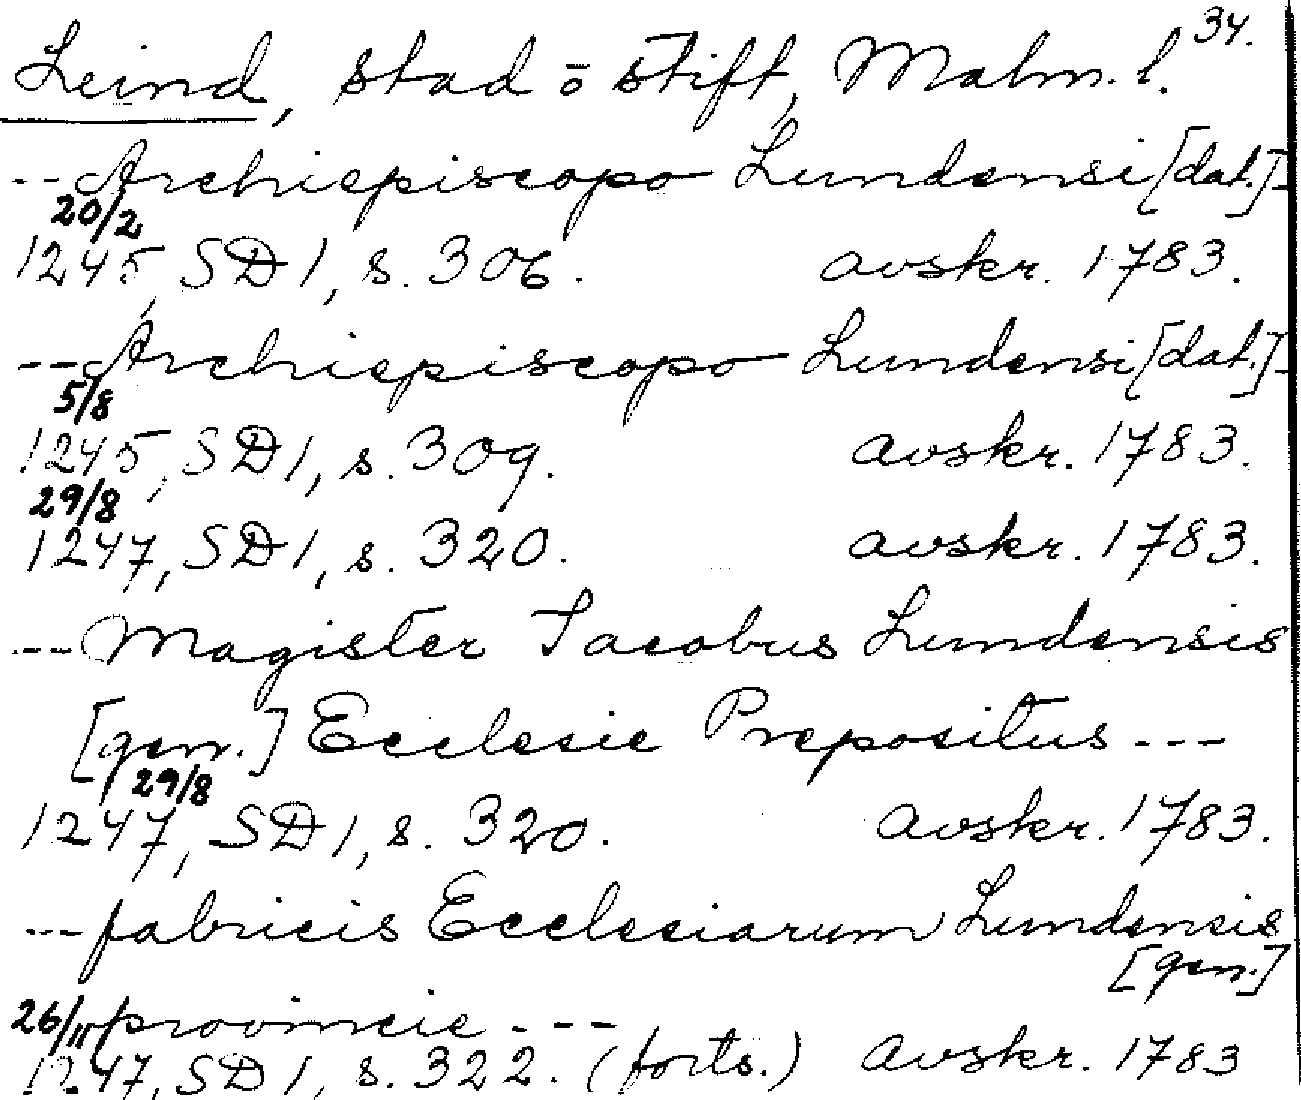 34.
Lund, stad o stift, Malm. l.
--Archiepiscopo Lundensi [dat.]-
20/2
1245, SD 1, s. 306. avskr. 1783.
--Archiepiscopo Lundensi [dat.]-
5/8
1245, SD 1, s. 309. avskr. 1783.
29/8
1247, SD 1, s. 320. avskr. 1783.
---Magister Iacobus Lundensis
[gen.] Ecclesie Prepositus ---
29/8
1247, SD 1, s. 320. avskr. 1783.
---fabricis Ecclesiarum Lundensis
[gen.]
26/11 provincie ---
1247, SD 1, s. 322. (forts.) avskr. 1783